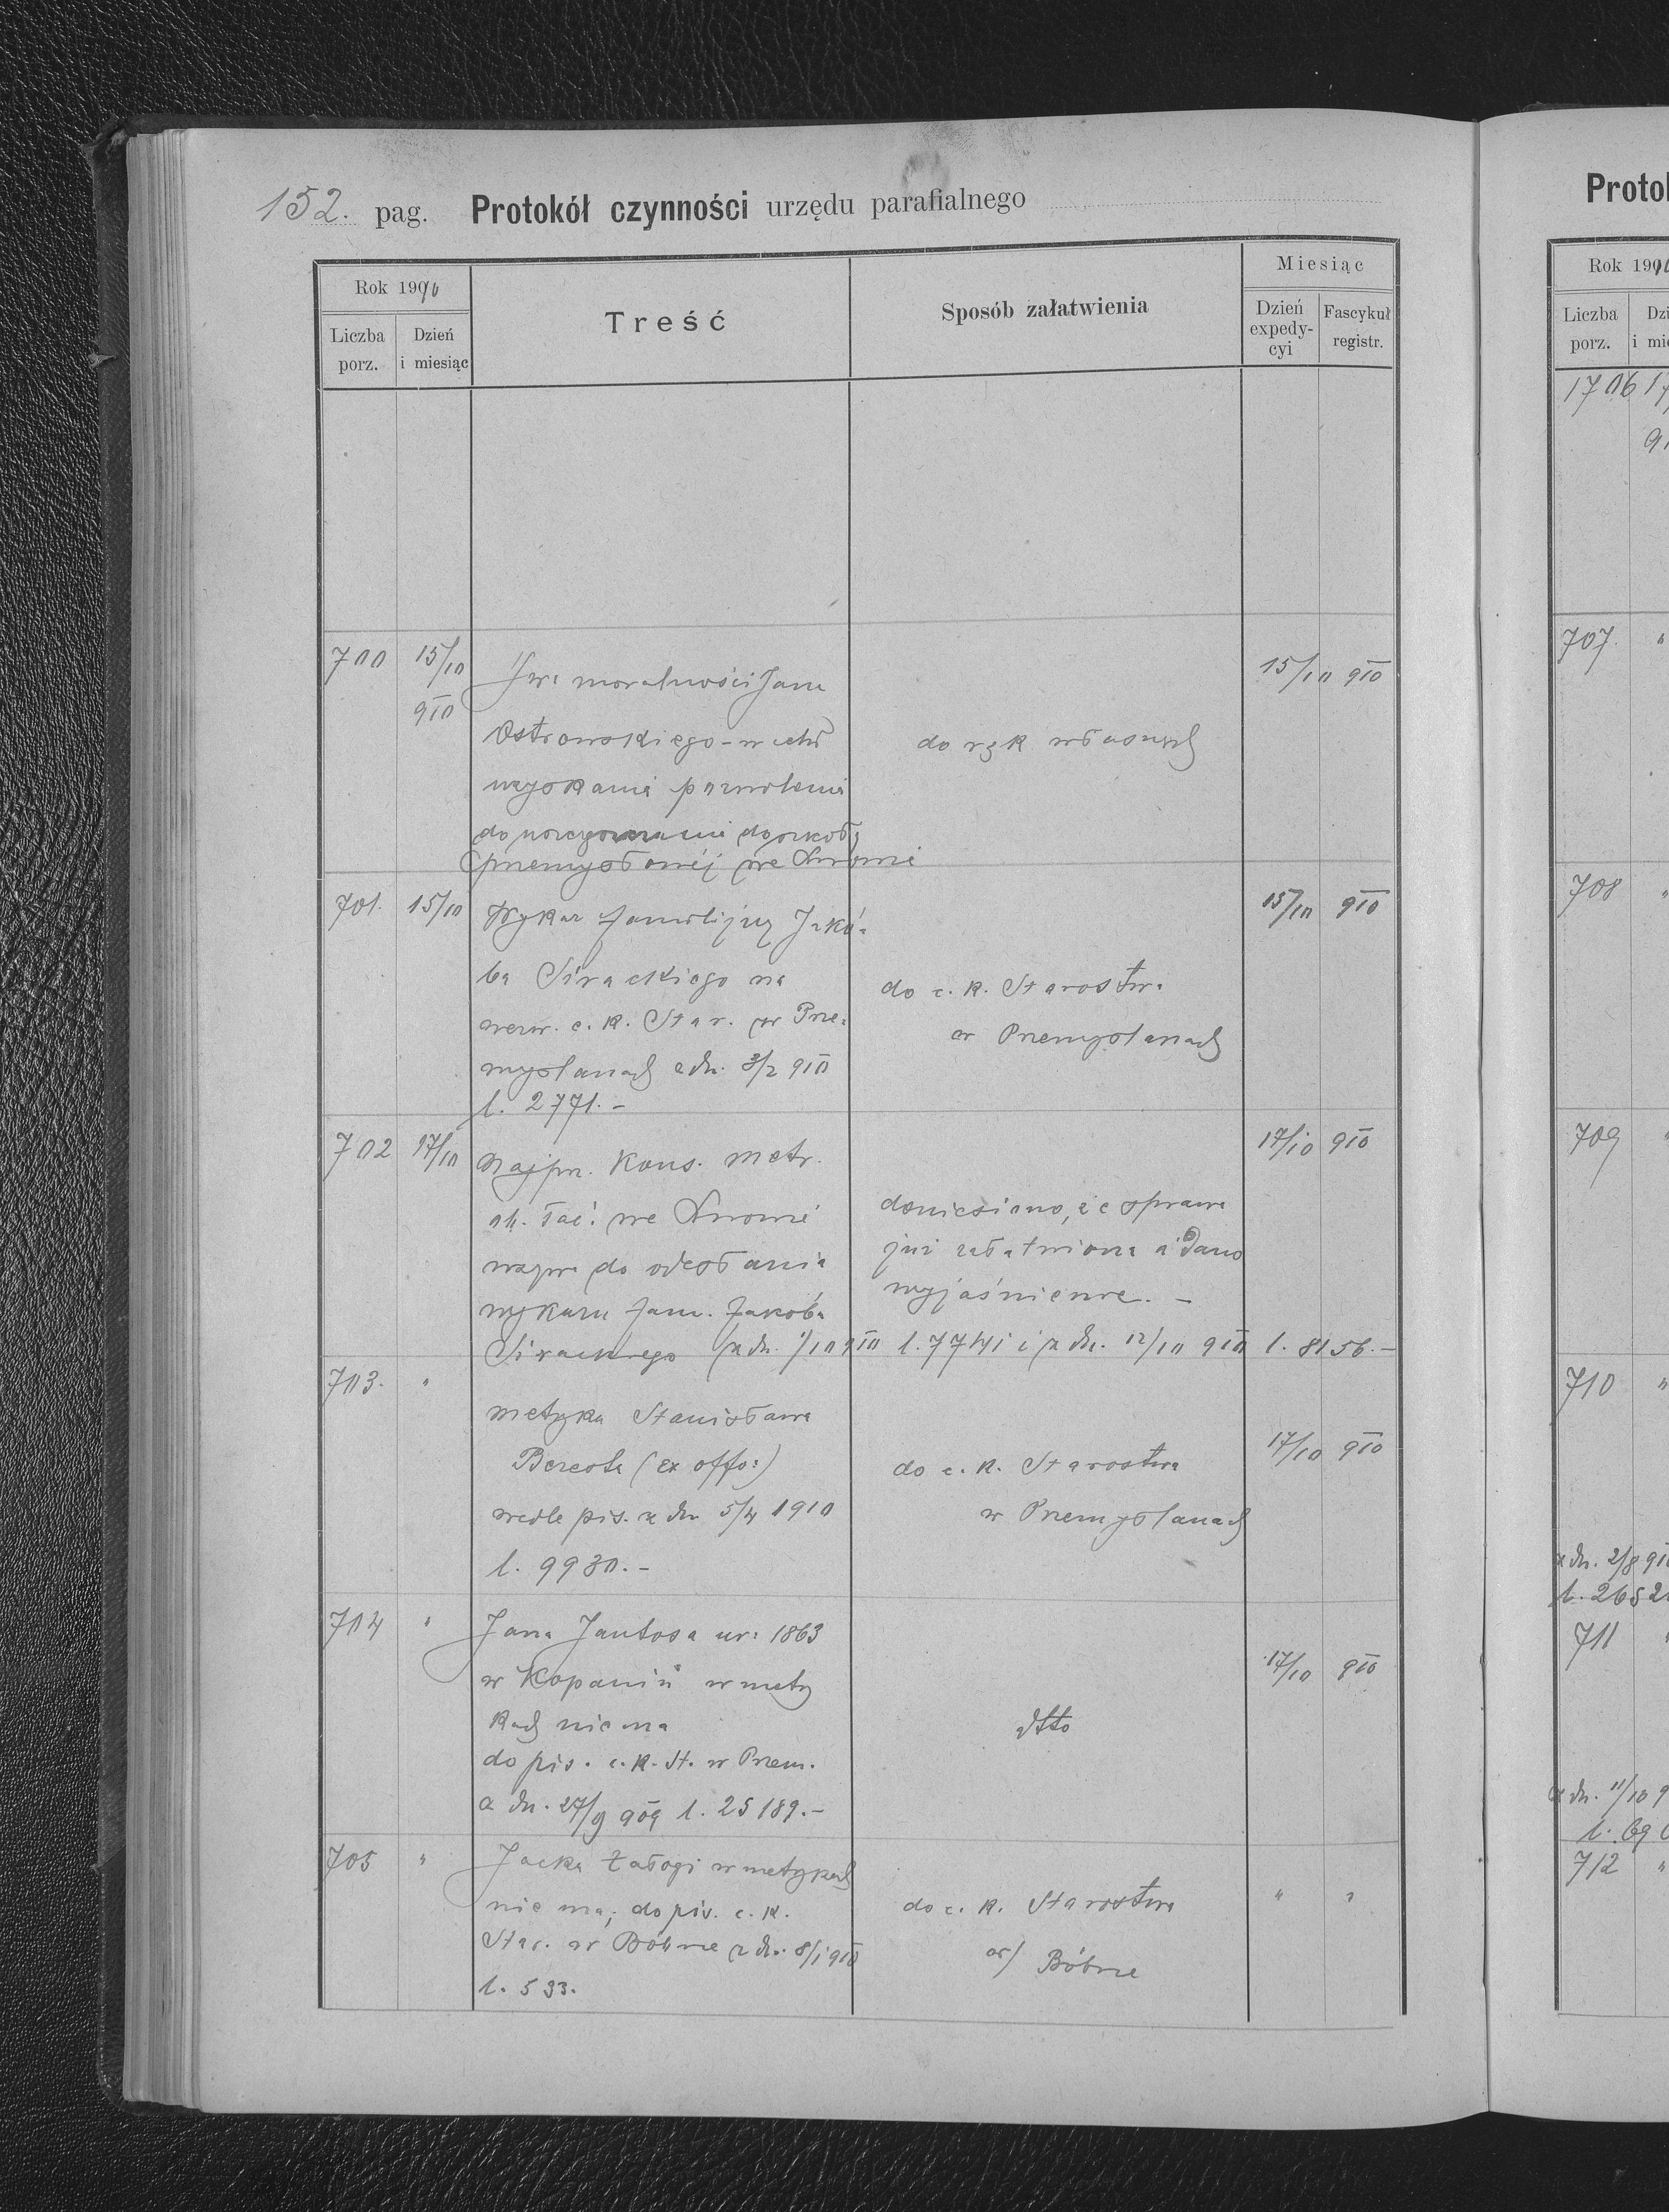 152. pag. Protokół czynności urzędu parafialnego
Rok 1910
Treść
Sposób załatwienia
Miesiąc
Liczba porz.
Dzień i miesiąc
Dzień expedycyi
Fascykuł registr.
700 15/10 910
moralności Jana
Ostrowskiego - w celu
uzyskania pozwolenia
do uczęszczania do szkoły
przemysłowéj we Lwowie
do rąk własnych
15/10 910
701. 15/10
Wykaz familijny Jakó-
ba Sirackiego na
wezw. c. k. Star. w Prze-
myślanach z dn. 3/2 910
l. 2771. -
do c. k. Starostwa
w Przemyślanach
15/10 910
702 17/10
Najprz. Kons. metr.
ob. łać: we Lwowie
wzywa do odesłania
wykazu fam. Jakóba
Sirackiego z dn. 1/10 910 l. 7741 i z dn. 12/10 910 l. 8156. -
doniesiono, że sprawa
już załatwiona i dano
wyjaśnienie. -
17/10 910
703. "
metryka Stanisława
(ex offo:)
wedle pis. z dn 5/4 1910
l. 9930. -
do c. k. Starostwa
w Przemyślanach
17/10 910
704 "
Jana Jantosa ur: 1863
w Kopaniu w metry
kach niema
do pis. c. k. St. w Przem.
z dn. 27/9 909 l. 25189. -
dtto
17/10 910
705 "
Jacka Załogi w metrykach
nie ma; do pis. c. k.
Star. w Bóbrce z dn. 8/1 910
l. 533.
do c. k. Starostwa
w/ Bóbrce
" "
Protok
Rok 191
Liczba porz.
Dzi
i mie
1706 17
91
707. "
708 "
709 "
710 "
z dn. 2/8 910
l. 2652
711 "
z dn. 11/10 9
l. 69
712 "